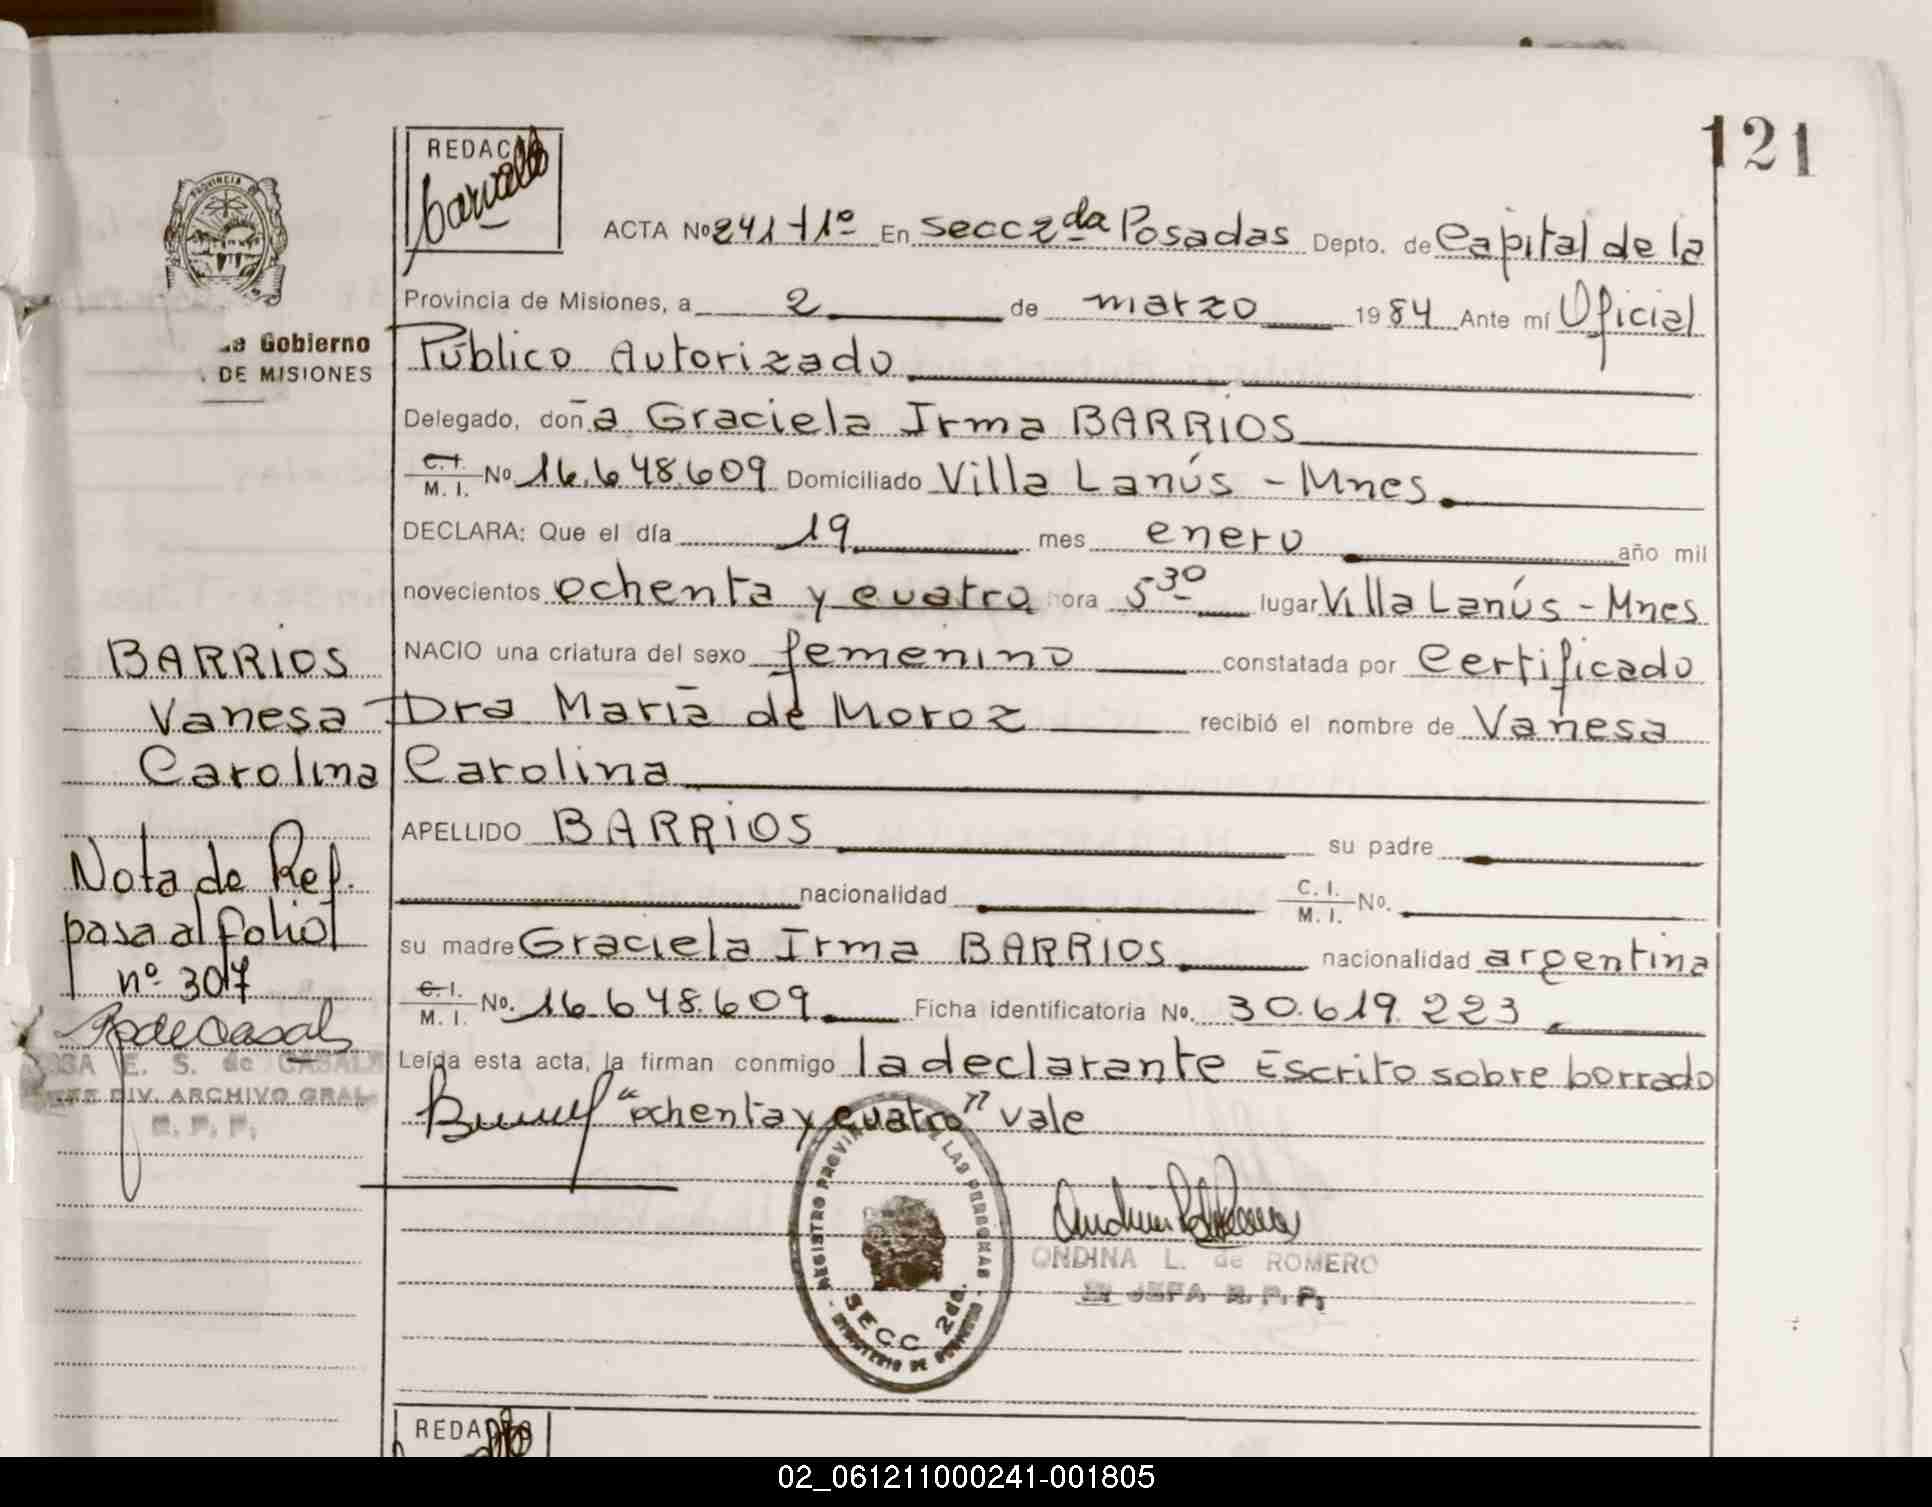 121
REDAC
Carvallo
ACTA Nº 241 t1º En Secc 2da Posadas Depto. de Capital de la
Provincia de Misiones, a 2 de marzo 1984 Ante mí Oficial
de Gobierno
DE MISIONES
Público Autorizado
Delegado, doña Graciela Irma BARRIOS
C.I. M.I. Nº 16.648.609 Domiciliado Villa Lanús - Mnes
DECLARA: Que el día 19 mes enero año mil
novecientos ochenta y cuatro hora 5 30 lugar Villa Lanús - Mnes
NACIO una criatura del sexo femenino constatada por Certificado
Dra María de Moroz recibió el nombre de Vanesa
Carolina
APELLIDO BARRIOS su padre
nacionalidad C.I. M.I. Nº.
su madre Graciela Irma BARRIOS nacionalidad argentina
C.I. M.I. Nº. 16.648.609 Ficha identificatoria Nº. 30.619.223
Leída esta acta, la firman conmigo la declarante Escrito sobre borrado
"ochenta y cuatro" vale
BARRIOS
Vanesa
Carolina
Nota de Ref.
pasa al folio
nº 307
E. S. de CASALS
DIV. ARCHIVO GRAL.
R. P. P.
REGISTRO PROVIN DE LAS PERSONAS
SECC 2da.
MINISTERIO DE GOBIERNO
ONDINA L. de ROMERO
JEFA R. P. P.
REDA
02_061211000241-001805